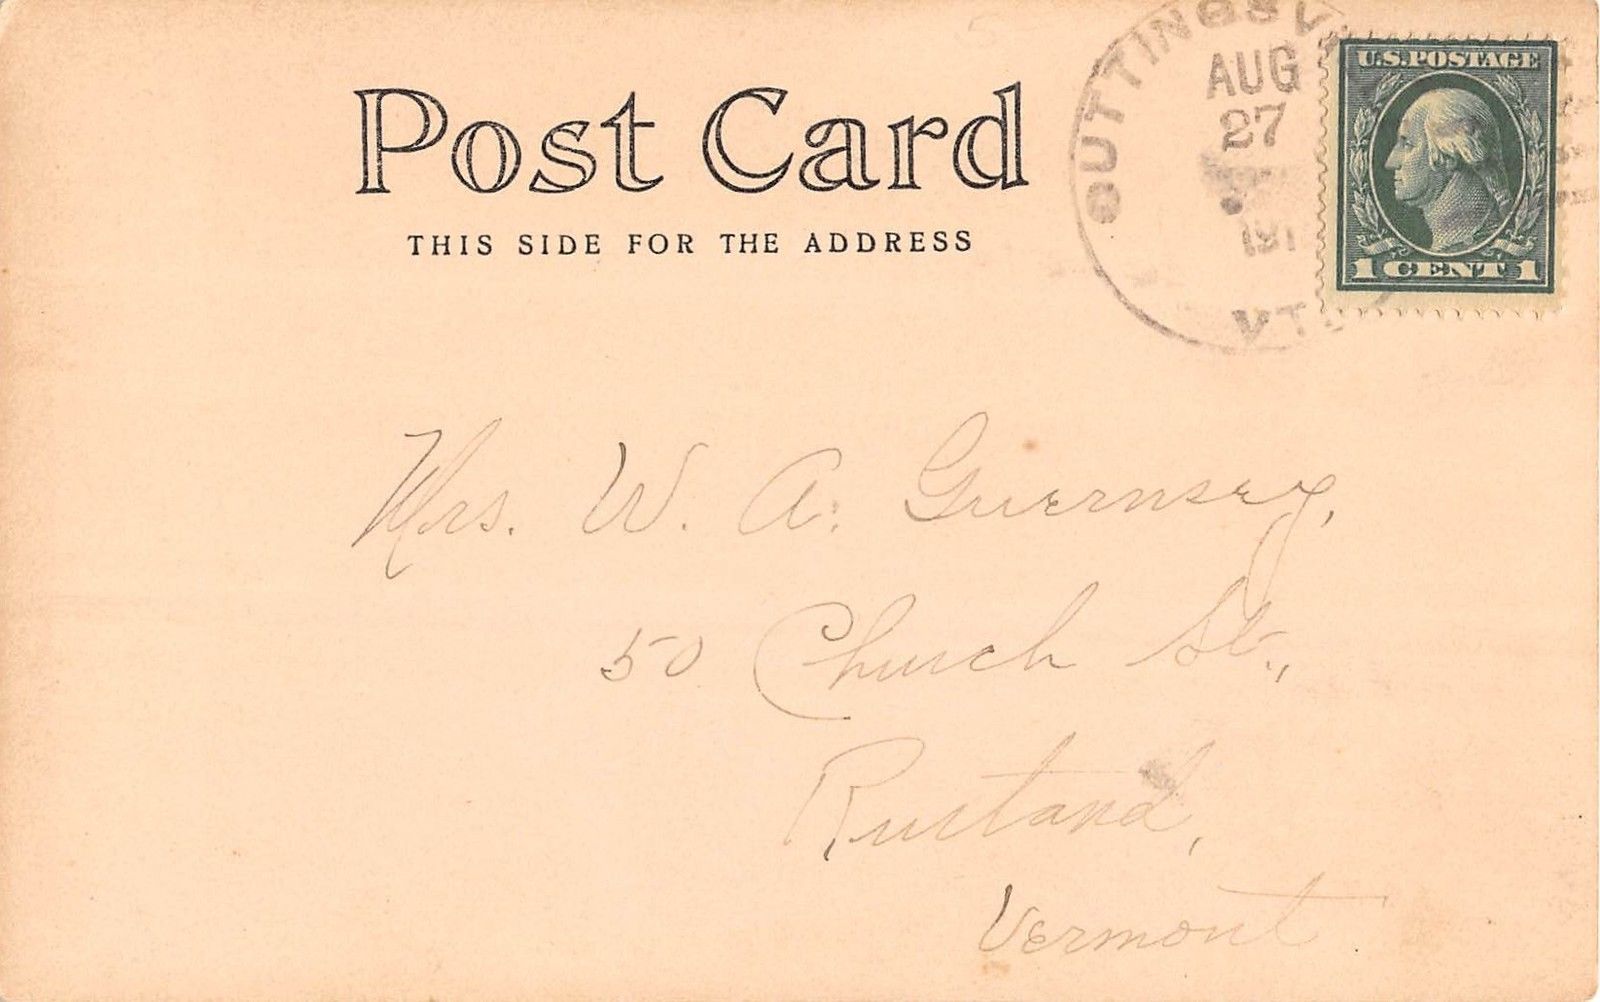 Post Card
THIS SIDE FOR THE ADDRESS
CUTTINGSV
AUG
27
191
VT.
U.S.POSTAGE
1 CENT 1
Mrs. W. A. Guernsey,
50 Church St.,
Rutland,
Vermont.